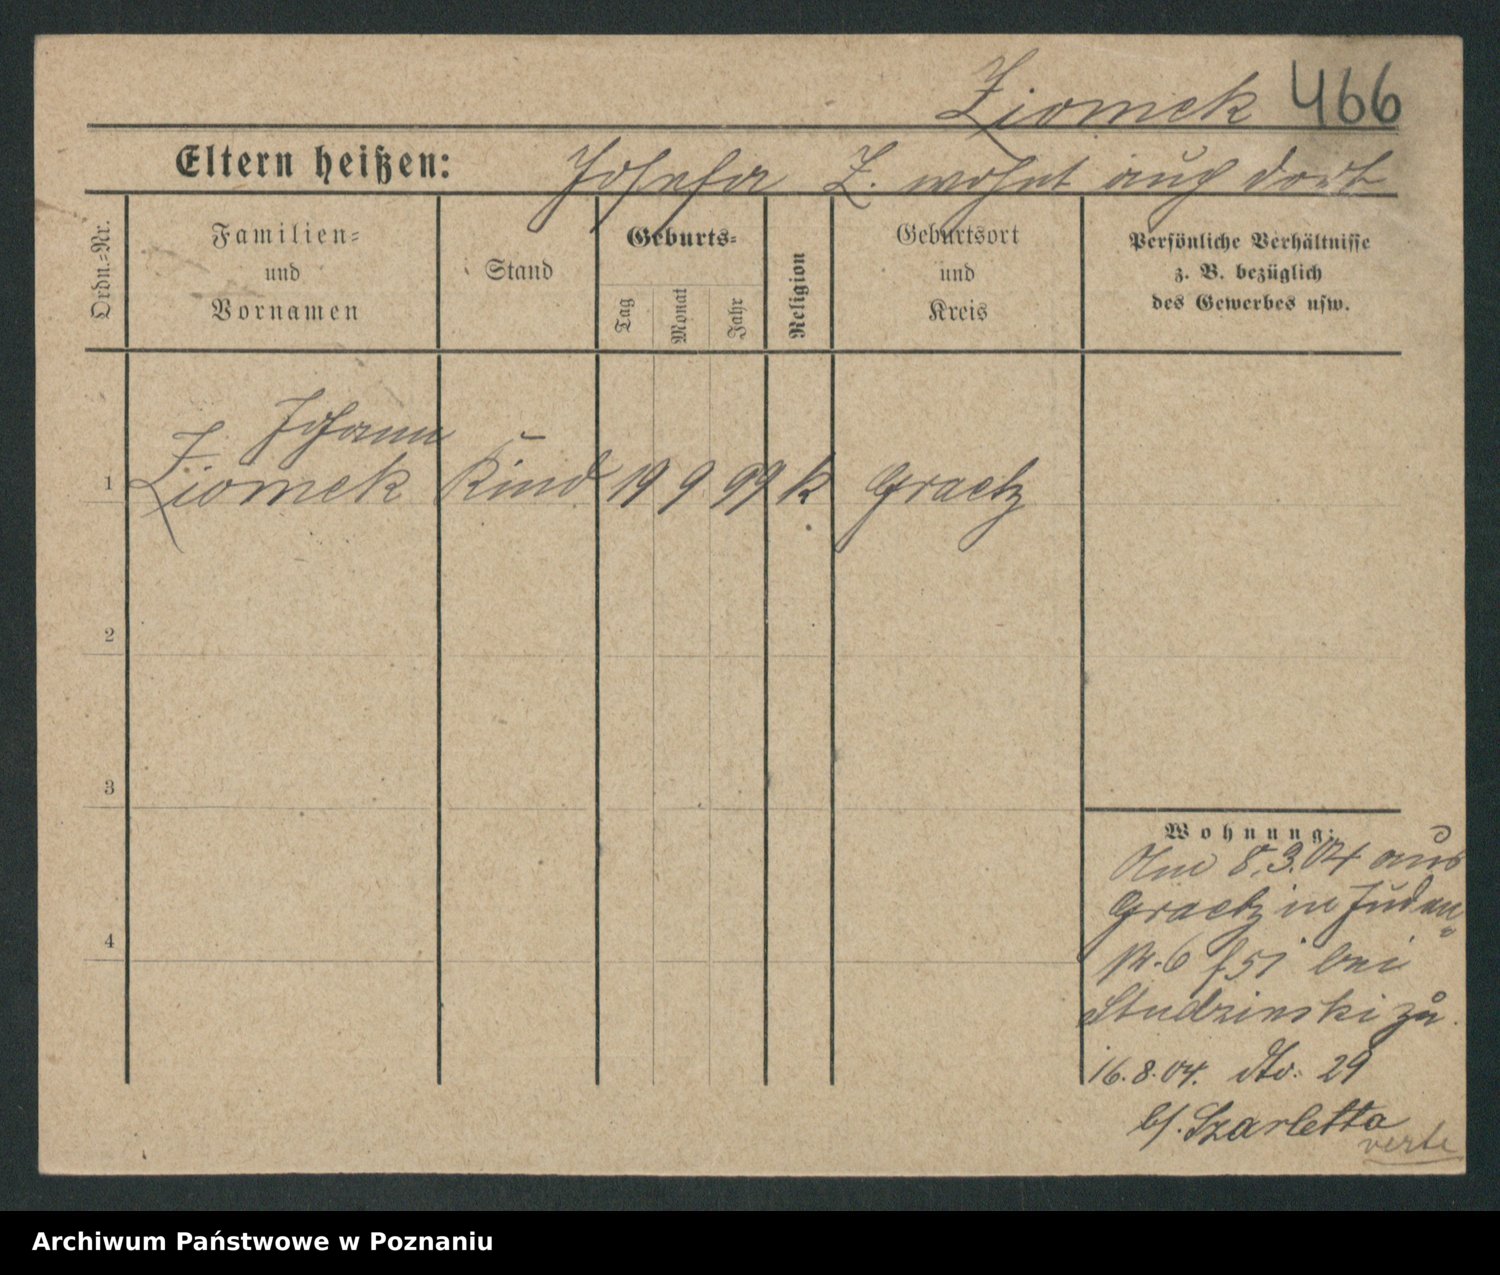 Ziomek 466
Eltern heißen: Josefa Z. wohnt auch dort
Ordn.=Nr.
Familien=
und
Vornamen
Stand
Geburts=
Tag
Monat
Jahr
Religion
Geburtsort
und
Kreis
Persönliche Verhältnisse
z. B. bezüglich
des Gewerbes usw.
Johann
1 Ziomek Kind 19 9 99 k Graetz
2
3
4
Wohnung:
Am 8.3.04 aus
Graetz in Juden=
bei
Studzinski zu.
16.8.04. dto. 29
b/. Szarletta
verte
Archiwum Państwowe w Poznaniu